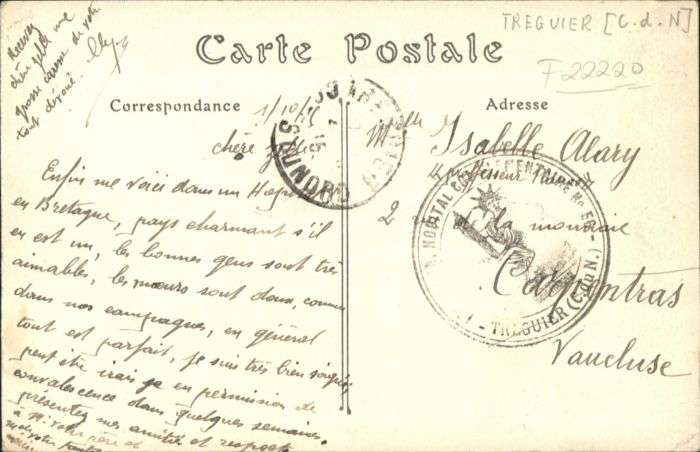 TREGUIER [C.d.N]
F 22220
Carte Postale
Correspondance
Adresse
1/10/15
chère
Enfin me voici dans un Hôpital
en Bretagne, pays charmant s'il
en est un, les bonnes gens sont très
aimables, les mœurs sont doux, comme
dans nos campagnes, en général
tout est parfait, je suis très bien soigné,
peut être irais je en permission de
convalescence dans quelques semaines.
présentez mes amitiés et respects
à Mr votre père et
Recevez
chère petite me
grosse caresse de votre
tout dévoué.
Melle Isabelle Alary
professeur
2 rue de la monnaie
Carpentras
Vaucluse
HOPITAL COMPLEMENTAIRE No 56 -
- TREGUIER (C. du N.)